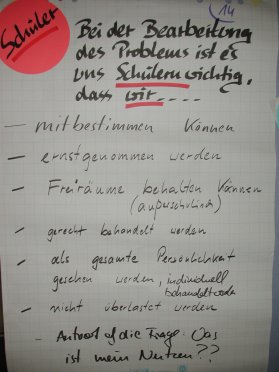 14
Schüler
Bei der Bearbeitung
des Problems ist es
uns Schülern wichtig,
dass wir.....
— mitbestimmen können
— ernstgenommen werden
— Freiräume behalten können
(außerschulisch)
— gerecht behandelt werden
— als gesamte Persönlichkeit
gesehen werden, individuell
behandelt werden
— nicht überlastet werden
- Antwort auf die Frage: Was
ist mein Nutzen??